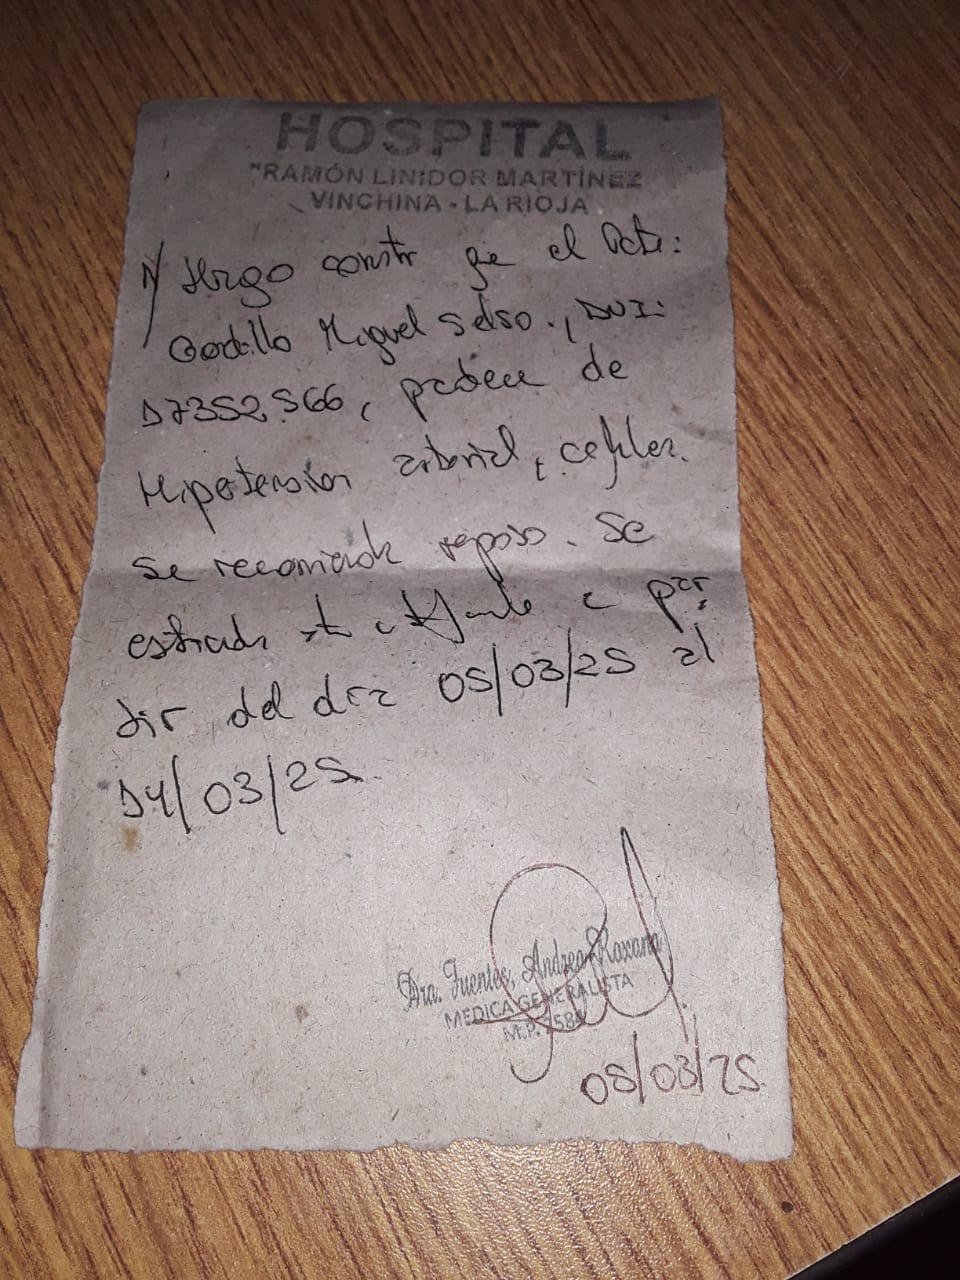 HOSPITAL
"RAMÓN LINIDOR MARTÍNEZ
VINCHINA - LA RIOJA
Hago constar qe el Pcte:
Gordillo Miguel Selso., DNI:
17352566, padece de
Hipotensión arterial, cefalea.
Se recomienda reposo. Se
a par
tir del día 05/03/25 al
14/03/25
Dra. Fuentes, Andrea Roxana
MEDICA GENERALISTA
M.P.
05/03/25